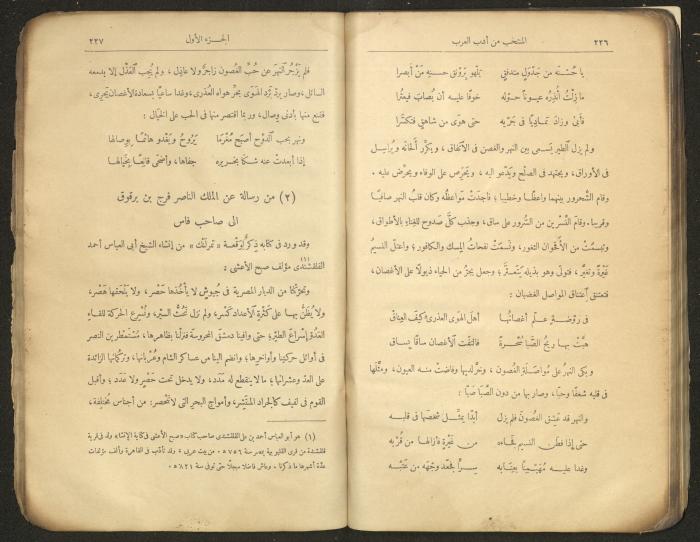 ٢٣٦ المنتخب من أدب العرب
يا حُسْنَه من جَدْوَلٍ متدفقٍ يُلهى برَوْنَقِ حسنه مَنْ أبصرا
ما زِلْتُ أُنْذِرُه عيونا حوله خوفا عليه أن يُصابَ فيعثُرا
فأبى وزاد تماديًا فى جَرْيِه حتى هوى من شاهق فتكسَّرا
ولم يزل الطير يَسعى بين النهر والغصن فى الاتفاق ، ويكرِّر ألحانه
فى الأوراق، ويجتهد فى الصلح ويَدْعو اليه ، ويَحْرِص على الوفاء ويحرِّض عليه .
وقام الشُّحرور بينهما واعظا وخطيبا ؛ فأجْدَتْ مَواعظُه وكان قلب النهر صافيًا
وقريبا. وقام النَّسْرين من السُّرور على ساق، وجذب كلَّ صَدوح للغناء بالأطواق،
وتبسمت من الأقحوان الثغور، وتَنسَّمتْ نفحات المِسك والكافور؛ واعتلّ النسيمُ
غَيْرةً وتغيَّر ، فتولَّى وهو بذيله يَتعثَّر؛ وجعل يجرّ من الحياء ذيولًا على الأغصان،
فتعتنق اعتناق المواصل الغضبان :
فى روضةٍ علَّم أغصانُها أهلَ الهوى العذرىّ كيفَ العِناق
هبَّتْ بها ريحُ الصَّبا سُحْرةً فالتفّت الأغصان ساقًا بساق
وبكى النهر على مُواصَلة الغصون ، وخرَّ لديها وفاضتْ منه العيون، ومثَّلها
فى قلبه شغفًا وحبا، وصار بها من دون الصَّبا صَبَّا :
والنهر قد عشِق الغصُونَ فلم يزل أبدًا يمثِّل شخصَها فى قلبه
حتى إذا فطن النسيم بحاءه من غَيْرةٍ فأزالها من قُربه
وغدا عليه مُهَيْنِمًا بعتابه سِرًّا فجعَّد وجهَه من عَتْبه
الجزء الأول ٢٣٧
فلم يَزجُر النهرَ عن حُبِّ الغصون زاجرٌ ولا عاذل ، ولم يُجِب العَذْل إلا بدمعه
السائل، وصار يردّ بَرْدَ الهَوَى بحرِّ هواه العُذْرى، وغدا ساعيا بسعادة الأغصان يَجْرِى،
فقنع منها بأدنى وصال، وربما اقتصر منها فى الحب على الخيال :
ونهرٍ بحب الدَّوْح أصبح مُغْرَما يَرُوحُ ويَغْدو هائما بوصالها
إذا ابعدتْ عنه شكَا بخريره جفاها، وأضحَى قانعًا بخيالها
(٢) من رسالة عن الملك الناصر فرج بن برقوق
الى صاحب فاس
وقد ورد فى كتابه ذِكرٌ لوقعة « تمرلنك » من إنشاء الشيخ أبى العباس أحمد
القلقشندى (١) مؤلف صبح الأعشى :
وتحرّكنا من الديار المصرية فى جُيوش لا يأخُذها حَصْر ، ولا يَلْحَقها هَصْر،
ولا يُظَنُّ بها على كثرة الأعداد كَسْر، ولم نزل نَحُثّ السير، ونُسْرع الحركة للقاء
العَدُوّ إسْرَاعَ الطَّير؛ حتى وافينا دِمشق المحروسة فنزلْنا بظاهرها، مُستمطِرين النصر
فى أوائل حركتنا وأواخرها؛ وانضم الينا من عساكر الشام وعُرْبانها، وتُركانها الزائدة
على العدّ وعشرانها، ما لا ينقطع له مَدَد، ولا يدخل تحت حَصْرٍ ولا عَدَد ؛ وأقبل
القوم فى لفيف كالجراد المنتشر، وأمواج البحر التى لا تنْحصر: من أجناس مختلفة،
(١) هو أبو العباس أحمد بن على القلقشندى صاحب كتاب «صبح الأعشى فى كتابة الإنشا» ولد فى قرية
قلقشندة من قرى القليوبية بمصر سنة ٧٥٦ ه من بيت عربى ، وقد تأدب فى القاهرة وألف مؤلفات
عدّة أشهرها ما ذكرنا ، وعاش فاضلا مبجلا حتى توفى سنة ٨٢١ ه .